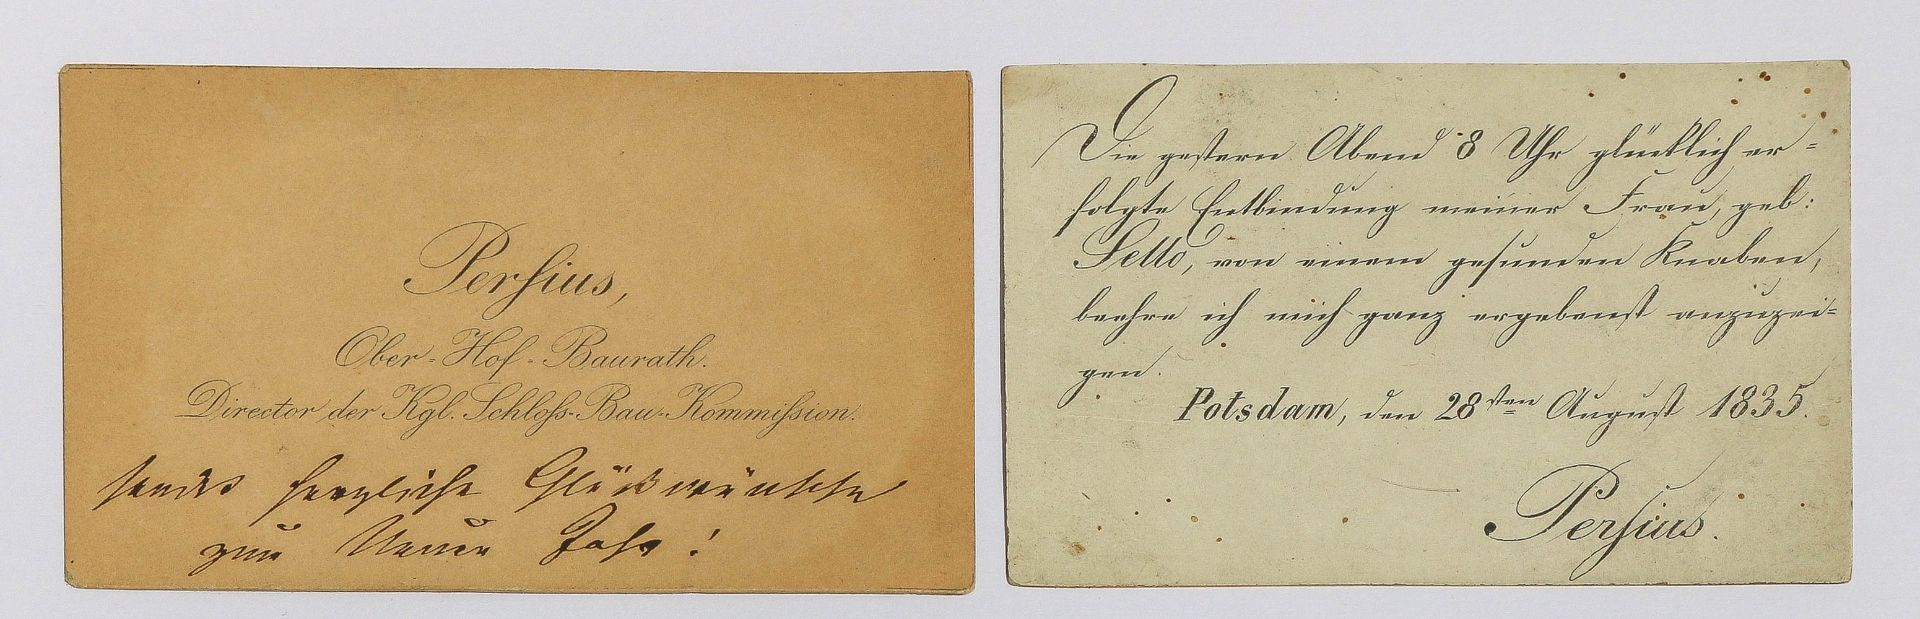 Persius,
Ober-Hof-Baurath.
Director der Kgl. Schloss-Bau-Kommission.
sendet herzliche Glückwünsche
zum Neuen Jahr!
Die gestern Abend 8 Uhr glücklich er=
folgte Entbindung meiner Frau, geb:
Sello, von einem gesunden Knaben,
beehre ich mich ganz ergebenst anzuzei=
gen.
Potsdam, den 28sten August 1835.
Persius.